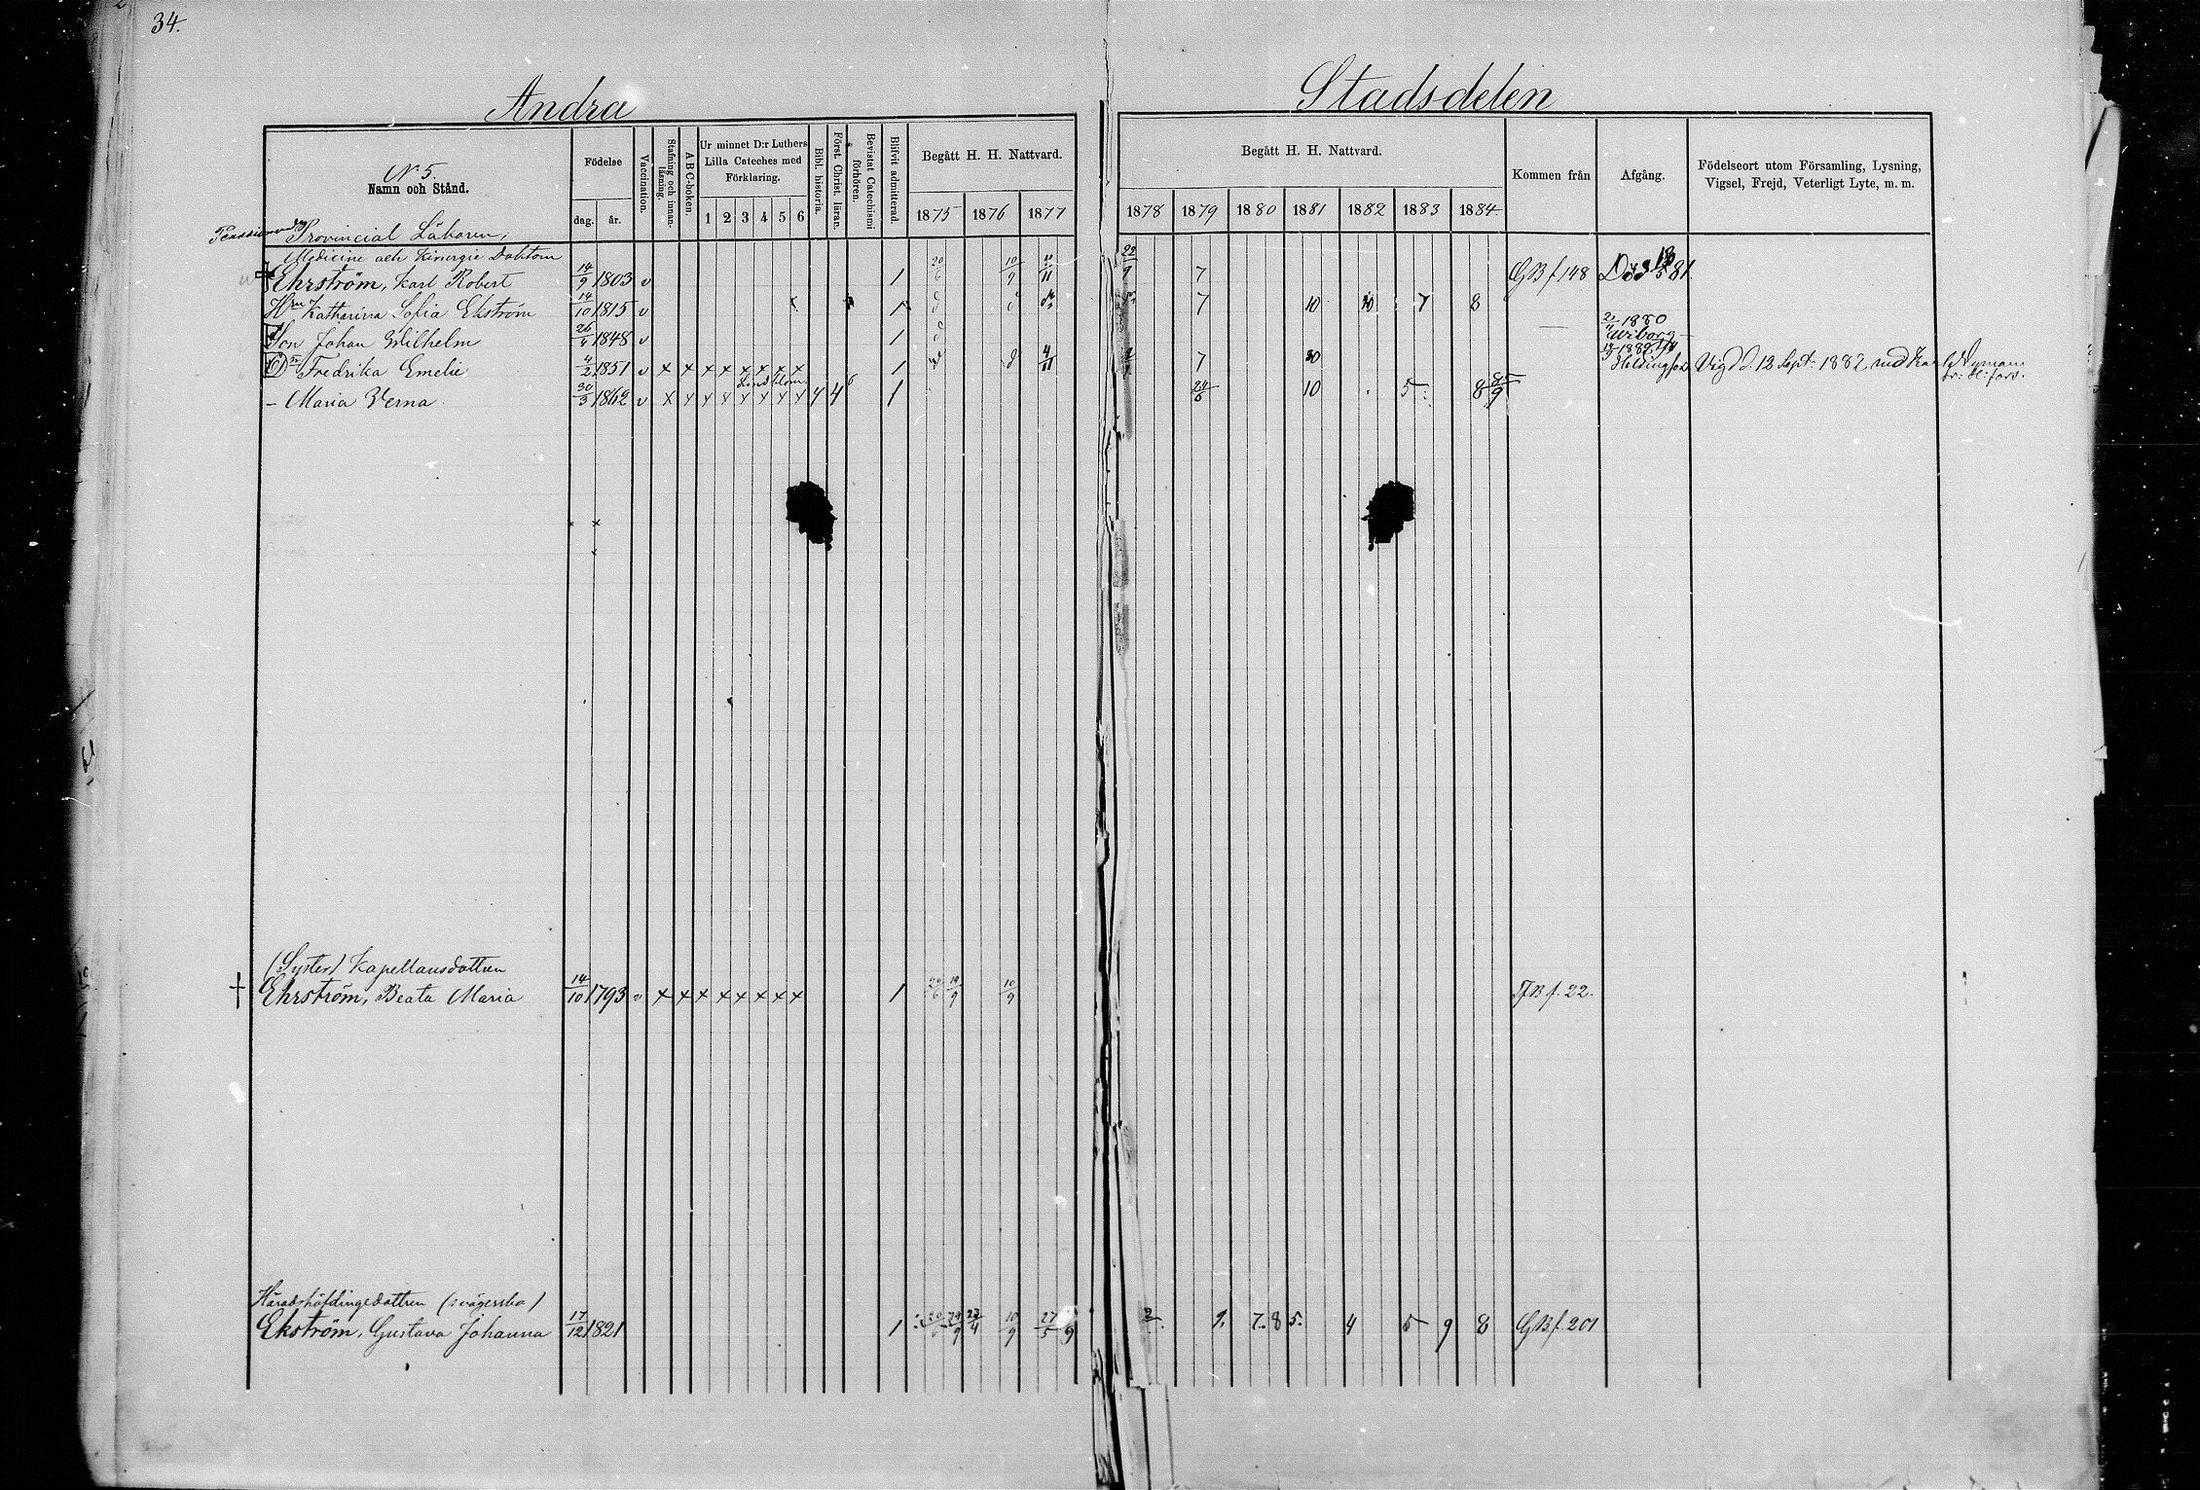 34.
Andra
Stadsdelen
N 5.
Namn och Stånd.
Födelse
dag. år.
Vaccination.
Stafning och innanläsning.
A B C-boken.
Ur minnet D:r Luthers Lilla Cateches med Förklaring.
1 2 3 4 5 6
Bibl. historia.
Först. Christ. läran.
Bevistat Catechismi förhören.
Blifvit admitterad.
Begått H. H. Nattvard.
1875 1876 1877
Begått H. H. Nattvard.
1878 1879 1880 1881 1882 1883 1884
Kommen från
Afgång.
Födelseort utom Församling, Lysning, Vigsel, Frejd, Veterligt Lyte, m. m.
Provincial Läkaren,
Medicine och Kirurgie Doktorn
Ehrström, Karl Robert 14/9 1803 v 1 20/6 10/9 22/9 7 GB f 148 Död 81
Hru Katharina Sofia Ekström 14/10 1815 v 1 d d 7 10 10 7 8
Son Johan Wilhelm 26/4 1848 v 1 d 1880 Wiborg
Dr Fredrika Emelie 4/2 1851 v x x x x x x x x 1 d 4/11 7 1882 Helsingfors Vigd d. 12 Sept: 1882 med Karl Nyman fr: H:fors.
Lindblom
- Maria Verna 30/3 1862 v x x x x x x x x 4 4 6 1 24/6 10 5 8 9
(Syster) Kapellansdottren
Ehrström, Beata Maria 14/10 1793 v x x x x x x x x 1 20/6 19/9 10/9 GB f. 22.
Häradshöfdingedottren (svägerska)
Ekström, Gustava Johanna 17/12 1821 1 23/4 10/9 27/5 9 2 9. 7. 8 5. 4 5 9 8 GB f. 201